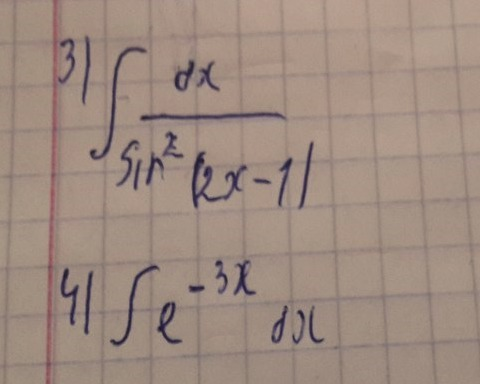 3) ∫ dx / sin² (2x-1)
4) ∫ e^{-3x} dx